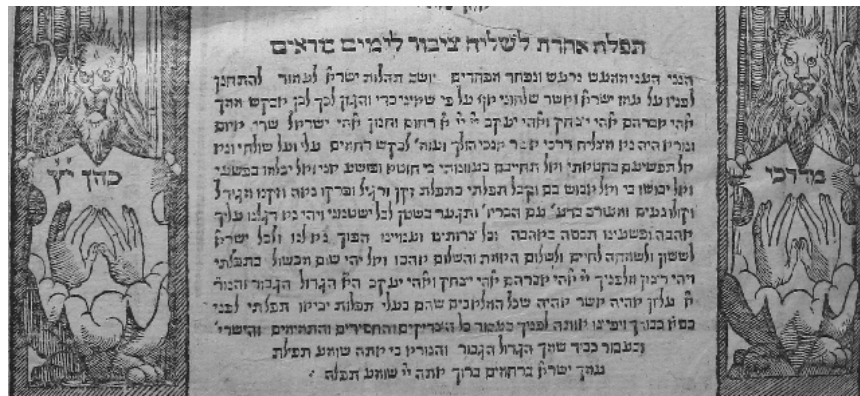 תפלה אחרת לשליח ציבור לימים נוראים
הנני העני ממעש נרעש ונפחד מפחדים יושב תהלות ישראל לעמוד להתחנן
לפניו על עמו ישראל אשר שלחוני אף על פי שאיני כדי והגון לכך לכן אבקש ממך
אלהי אברהם אלהי יצחק ואלהי יעקב יי יי אל רחום וחנון אלהי ישראל שדי איום
ונורא היה נא מצליח דרכי אשר אנכי הולך ועומ׳ לבקש רחמים עלי ועל שולחי ונא
אל תפשיעם בחטאתי ואל תחייבם בעוונותי כי חוטא ופושע אני ואל יכלמו בפשעי
ואל יבושו בי ואל אבוש בם וקבל תפלתי כתפלת זקן ורגיל ופרקו נאה וזקנו מגודל
וקולו נעים ומעורב בדע׳ עם הבריו׳ ותגער בשטן לבל ישטמני ויהי נא דגלנו עליך
אהבה ופשעינו תכסה באהבה וכל צרותינו ועניינו הפוך נא לנו ולכל ישראל
לששון ולשמחה לחיים ולשלום האמת והשלום אהבו ואל יהי שום מכשול בתפלתי
ויהי רצון מלפניך יי אלהי אברהם אלהי יצחק ואלהי יעקב האל הגדול הגבור והנור׳
אל עליון אהיה אשר אהיה שכל המלאכים שהם בעלי תפלות יביאו תפלתי לפני
כסא כבודך ויפיצו אותה לפניך בעבור כל הצדיקים והחסידים והתמימים והישרי׳
ובעבור כבוד שמך הגדול הגבור והנורא כי אתה שומע תפלת
עמך ישראל ברחמים ברוך אתה יי שומע תפלה
מרדכי
כהן